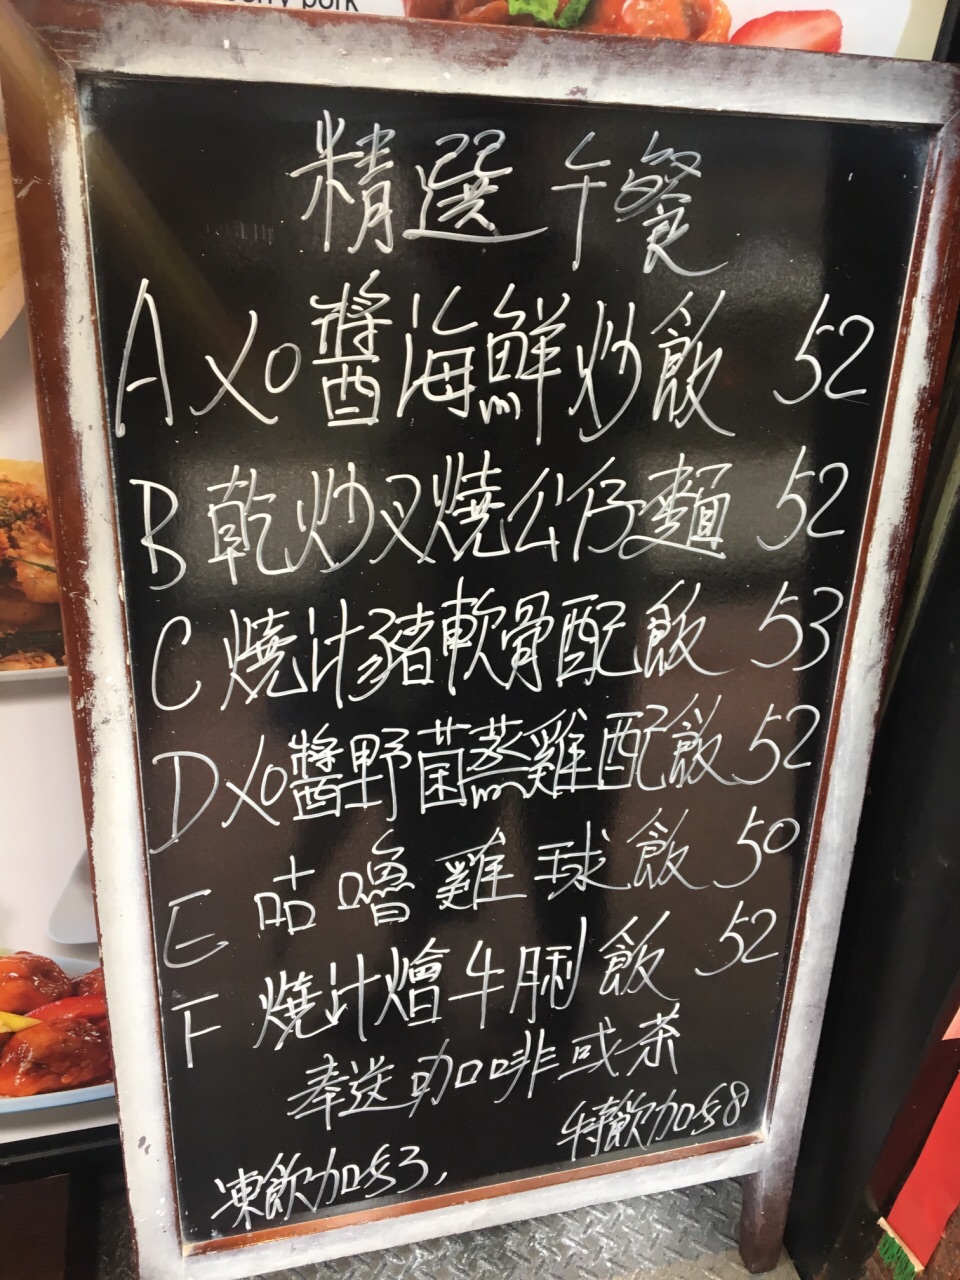 pork
精選午餐
A XO醬海鮮炒飯 52
B 乾炒叉燒公仔麵 52
C 燒汁豬軟骨配飯 53
D XO醬野菌蒸雞配飯 52
E 咕嚕雞球飯 50
F 燒汁燴牛脷飯 52
奉送咖啡或茶
特飲加$8
凍飲加$3,